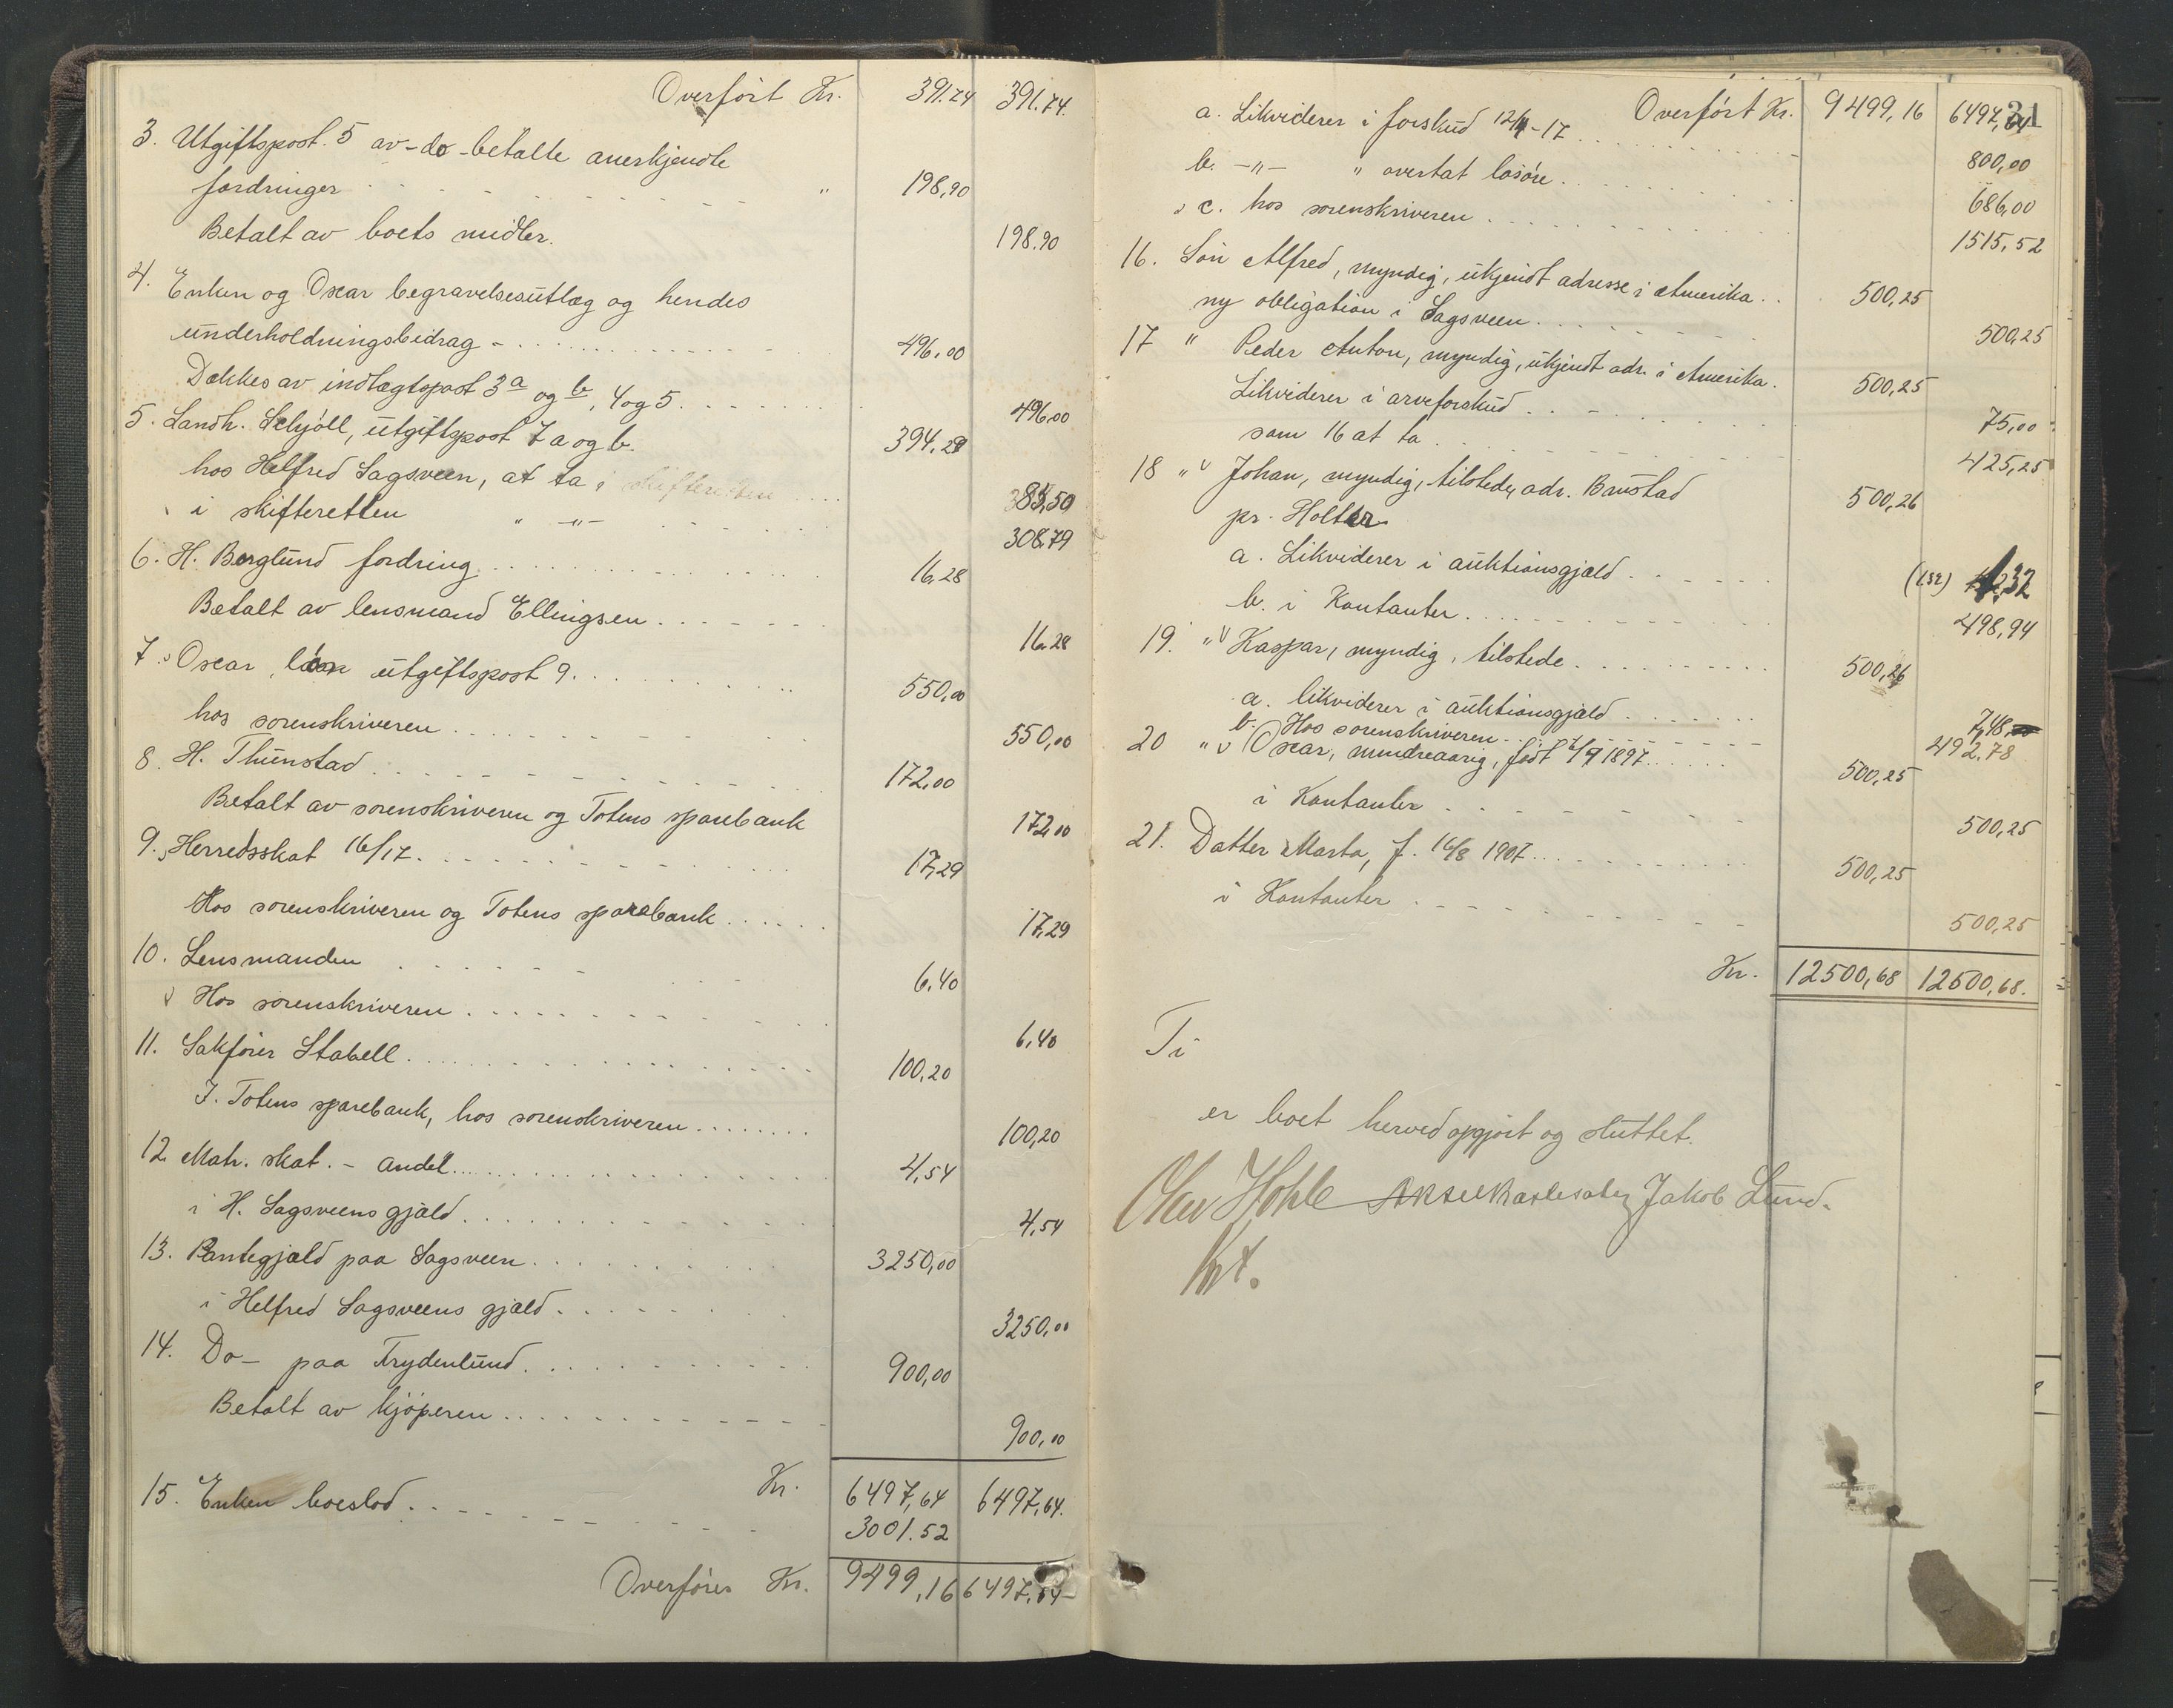 Overført Kr. 391.74 391.74.
3. Utgiftspost. 5 av-do-betalte anerkjendte
fordringer " 198,90
Betalt av boets midler. 198.90
4. Enken og Oscar begravelsesutlæg og hendes
underholdningsbidrag 496,00
Dækkes av indtægtspost 3a og b, 4 og 5. 496.00
5. Landh. Schjöll, utgiftspost 7 a og b. 394,29
hos Helfred Sagsveen, at ta i skifteretten 85,50
i skifteretten " -"- 308.79
6. H. Berglund fordring 16,28
Betalt av lensmand Ellingsen 16.28
7. Oscar, lön utgiftspost 9. 550,00
hos sorenskriveren 550,00
8. H. Thunstad 172,00
Betalt av sorenskriveren og Totens sparebank 172,00
9. Herredsskat 16/17. 17,29
Hos sorenskriveren og Totens sparebank 17,29
10. Lensmanden 6.40
Hos sorenskriveren 6,40
11. Sakfører Stabell 100,20
I. Totens sparebank, hos sorenskriveren 100,20
12 Matr. skat. - andel 4,54
i H. Sagsveens gjæld 4,54
13. Pantegjæld paa Sagsveen 3250,00
i Helfred Sagsveens gjæld 3250,00
14. Do- paa Frydenlund 900,00
Betalt av kjøperen 900,00
Kr. 6497,64 6497,64.
15. Enken boeslod 3001.52
Overføres Kr. 9499,16 6497,64
31
Overført Kr. 9499,16 6497,64
a. Likviderer i forskud 12/4-17 800,00
b. -"- " overtat løsöre 686,00
c. hos sorenskriveren 1515,52
16. Sön Alfred, myndig, ukjendt adresse i Amerika 500,25
ny obligation i Sagsveen 500,25
17 " Peder Anton, myndig, ukjendt adr. i Amerika. 500,25
Likviderer i arveforskud 75,00
som 16 at ta 425,25
18 " Johan, myndig, tilstede, adr. Baustad 500,26
pr. Holter
a. Likviderer i auktionsgjæld (132) 1,32
b. i Kontanter 498,94
19. " Kaspar, myndig, tilstede 500,26
a. likviderer i auktionsgjæld 7,48
b. Hos sorenskriveren 492.78
20 " Oscar, mindreaarig, født 4/7 1897 500,25
i Kontanter 500,25
21. Datter Marta, f. 16/8 1907 500,25
i Kontanter 500,25
Kr. 12500,68 12500,68.
Ti
er boet herved opgjort og sluttet.
Jakob Lund.